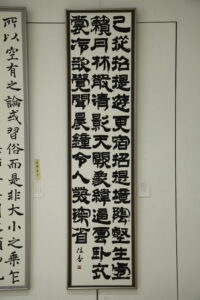 已從招提遊更宿招提境陰壑生虛
籟月林散清影天闕象緯逼雲卧衣
裳冷欲覺聞晨鐘令人發深省
所以空有之論或習俗而是非大小之乘乍